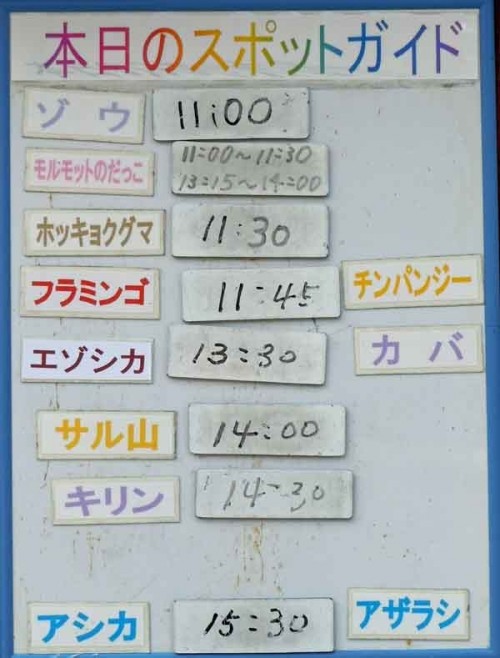 本日のスポットガイド
ゾウ 11:00
モルモットのだっこ 11:00～11:30
13:15～14:00
ホッキョクグマ 11:30
フラミンゴ 11:45 チンパンジー
エゾシカ 13:30 カバ
サル山 14:00
キリン 14:30
アシカ 15:30 アザラシ